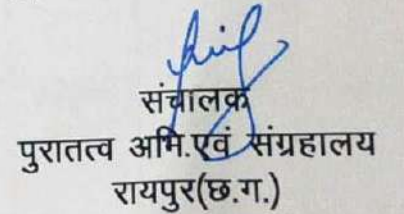 संचालक
पुरातत्व अभि.एवं संग्रहालय
रायपुर(छ.ग.)